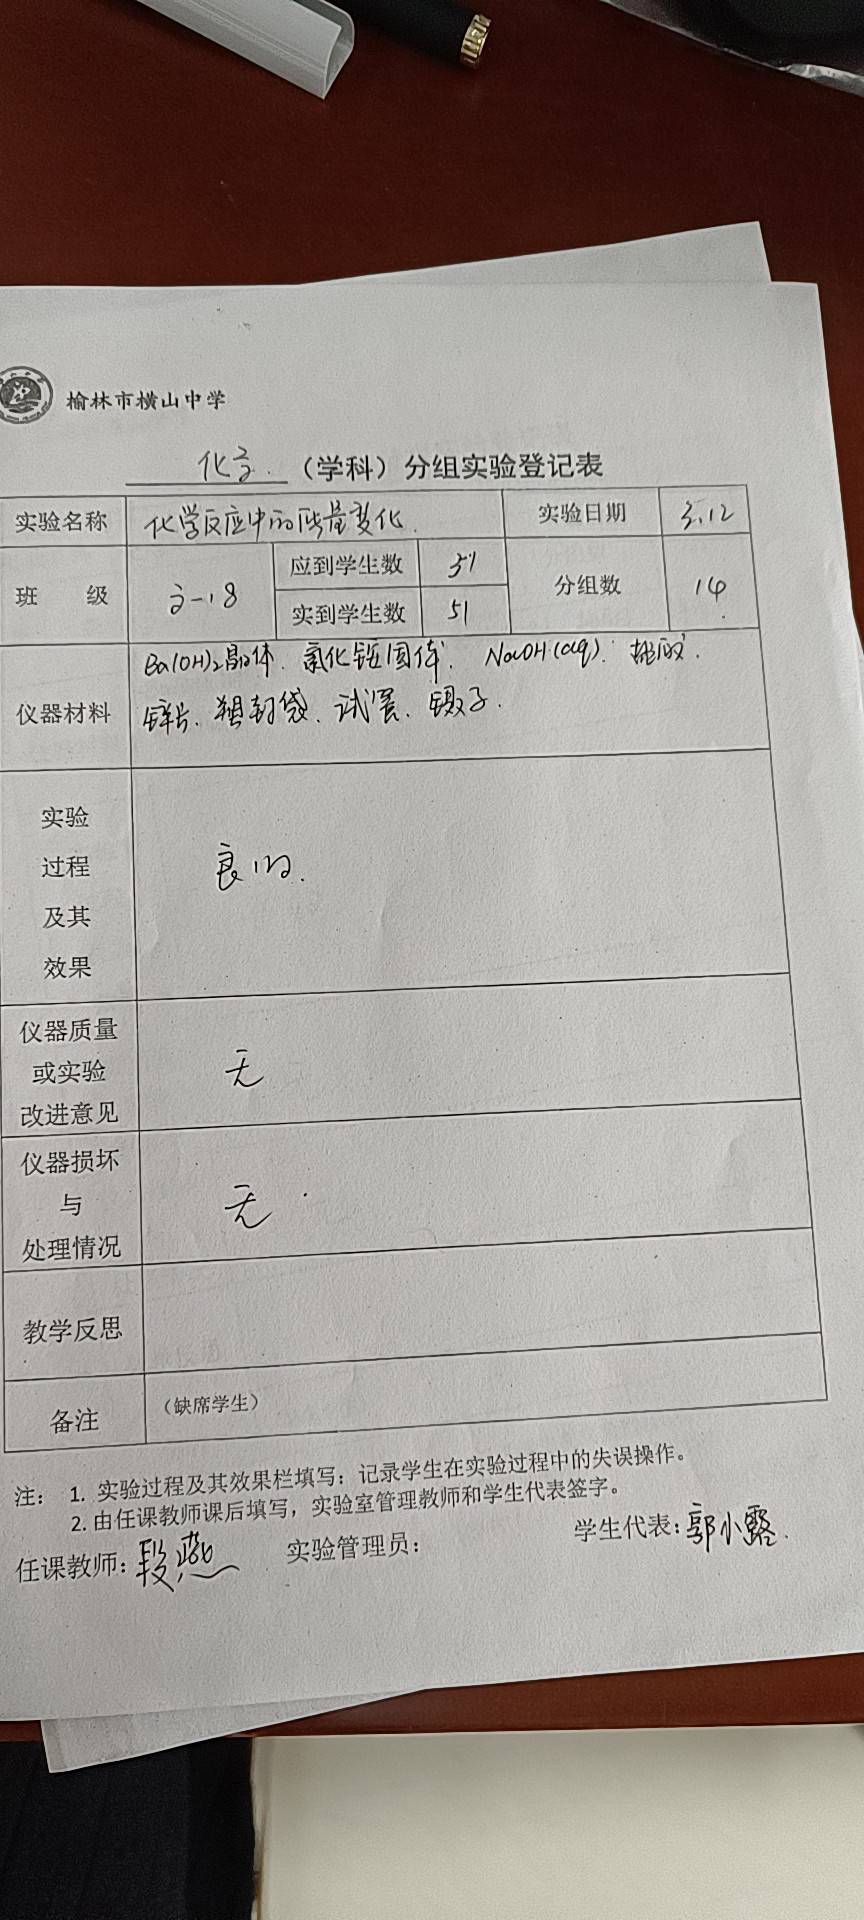 榆林市横山中学
化学 （学科）分组实验登记表
实验名称 化学反应中的能量变化 实验日期 3.12
班 级 高一.18 应到学生数 51 分组数 14
实到学生数 51
仪器材料 Ba(OH)₂晶体、氯化铵固体、NaOH(aq)、盐酸、
锌片、塑封袋、试管、镊子.
实验
过程
及其
效果
良好.
仪器质量
或实验
改进意见
无
仪器损坏
与
处理情况
无
教学反思
备注 （缺席学生）
注： 1. 实验过程及其效果栏填写：记录学生在实验过程中的失误操作。
2. 由任课教师课后填写，实验室管理教师和学生代表签字。
任课教师：段燕 实验管理员： 学生代表：郭小露.